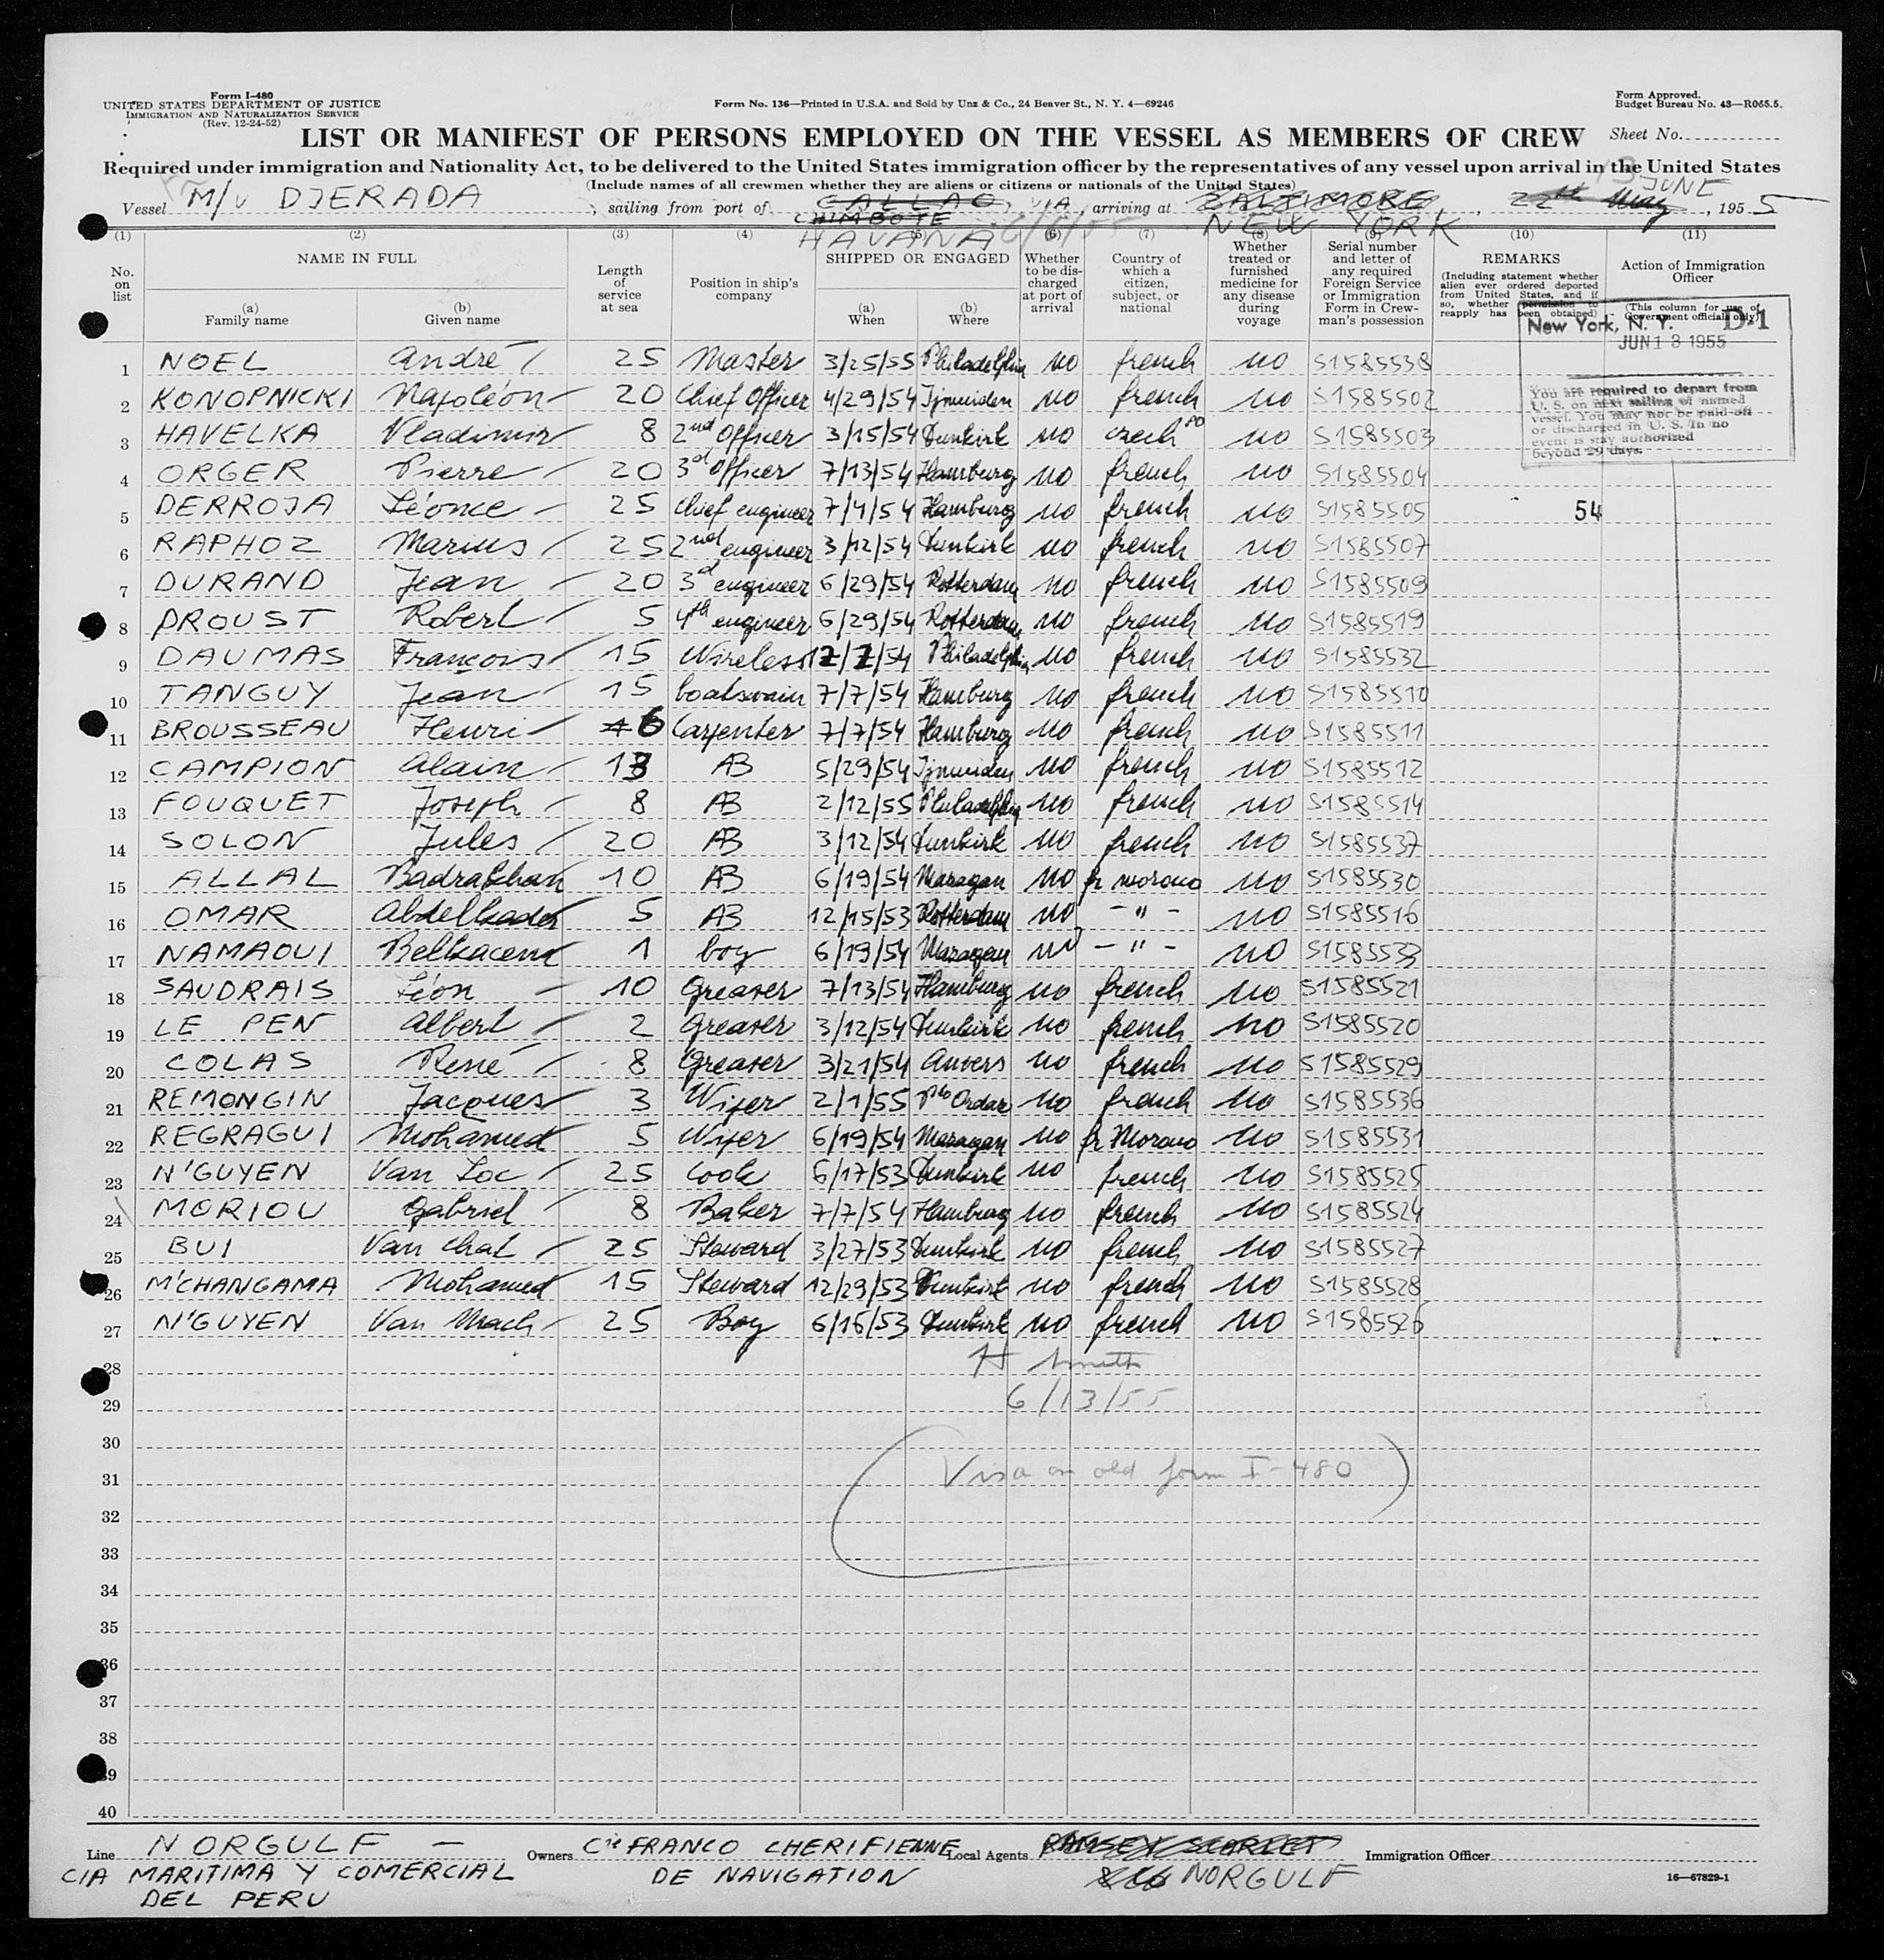 Form I-480
UNITED STATES DEPARTMENT OF JUSTICE
IMMIGRATION AND NATURALIZATION SERVICE
(Rev. 12-24-52)
Form No. 136—Printed in U.S.A. and Sold by Unz & Co., 24 Beaver St., N. Y. 4—69246
Form Approved.
Budget Bureau No. 43—R065.5.
LIST OR MANIFEST OF PERSONS EMPLOYED ON THE VESSEL AS MEMBERS OF CREW
Sheet No.
Required under immigration and Nationality Act, to be delivered to the United States immigration officer by the representatives of any vessel upon arrival in the United States
(Include names of all crewmen whether they are aliens or citizens or nationals of the United States)
13 JUNE
Vessel M/V DJERADA, sailing from port of CALLAO VIA, arriving at BALTIMORE, 22th May, 1955
CHIMBOTE
HAVANA 6/6/55 NEW YORK
(1) (2) (3) (4) (5) (6) (7) (8) (9) (10) (11)
No. on list
NAME IN FULL
(a) Family name
(b) Given name
Length of service at sea
Position in ship's company
SHIPPED OR ENGAGED
(a) When
(b) Where
Whether to be discharged at port of arrival
Country of which a citizen, subject, or national
Whether treated or furnished medicine for any disease during voyage
Serial number and letter of any required Foreign Service or Immigration Form in Crewman's possession
REMARKS
(Including statement whether alien ever ordered deported from United States, and if so, whether permission to reapply has been obtained)
Action of Immigration Officer
(This column for use of Government officials only)
New York, N. Y. D-1
JUN 13 1955
You are required to depart from
U. S. on next sailing of named
vessel. You may not be paid-off
or discharged in U. S. In no
event is stay authorized
beyond 29 days.
1 NOEL André 25 Master 3/25/55 Philadelphia no french no S1585538
2 KONOPNICKI Napoléon 20 Chief Officer 4/29/54 Ijmuiden no french no S1585502
3 HAVELKA Vladimir 8 2nd Officer 3/15/54 Dunkirk no czech no S1585503
4 ORGER Pierre 20 3d Officer 7/13/54 Hamburg no french no S1585504
5 DERROJA Léonce 25 Chief engineer 7/4/54 Hamburg no french no S1585505 54
6 RAPHOZ Marius 25 2nd engineer 3/12/54 Dunkirk no french no S1585507
7 DURAND Jean 20 3d engineer 6/29/54 Rotterdam no french no S1585509
8 PROUST Robert 5 4th engineer 6/29/54 Rotterdam no french no S1585519
9 DAUMAS François 15 Wireless 12/7/54 Philadelphia no french no S1585532
10 TANGUY Jean 15 boatswain 7/7/54 Hamburg no french no S1585510
11 BROUSSEAU Henri 6 Carpenter 7/7/54 Hamburg no french no S1585511
12 CAMPION Alain 13 AB 5/29/54 Ijmuiden no french no S1585512
13 FOUQUET Joseph 8 AB 2/12/55 Philadelphia no french no S1585514
14 SOLON Jules 20 AB 3/12/54 Dunkirk no french no S1585537
15 ALLAL Badrakhan 10 AB 6/19/54 Mazagan no fr moroco no S1585530
16 OMAR Abdelkader 5 AB 12/15/53 Rotterdam no - " - no S1585516
17 NAMAOUI Belkacem 1 boy 6/19/54 Mazagan no - " - no S1585533
18 SAUDRAIS Léon 10 Greaser 7/13/54 Hamburg no french no S1585521
19 LE PEN Albert 2 Greaser 3/12/54 Dunkirk no french no S1585520
20 COLAS René 8 Greaser 3/21/54 Anvers no french no S1585529
21 REMONGIN Jacques 3 Wiper 2/1/55 Pto Ordaz no french no S1585536
22 REGRAGUI Mohamed 5 Wiper 6/19/54 Mazagan no fr Moroco no S1585531
23 N'GUYEN Van Loc 25 Cook 6/17/53 Dunkirk no french no S1585525
24 MORIOU Gabriel 8 Baker 7/7/54 Hamburg no french no S1585524
25 BUI Van Chat 25 Steward 3/27/53 Dunkirk no french no S1585527
26 M'CHANGAMA Mohamed 15 Steward 12/29/53 Dunkirk no french no S1585528
27 N'GUYEN Van Mach 25 Boy 6/16/53 Dunkirk no french no S1585526
28 H Smith
29 6/13/55
30
31 Visa on old form I-480
32
33
34
35
36
37
38
39
40
Line NORGULF — Owners Cie FRANCO CHERIFIENNE Local Agents RAMSEY SCARLET Immigration Officer
CIA MARITIMA Y COMERCIAL DE NAVIGATION & Co NORGULF 16—67829-1
DEL PERU